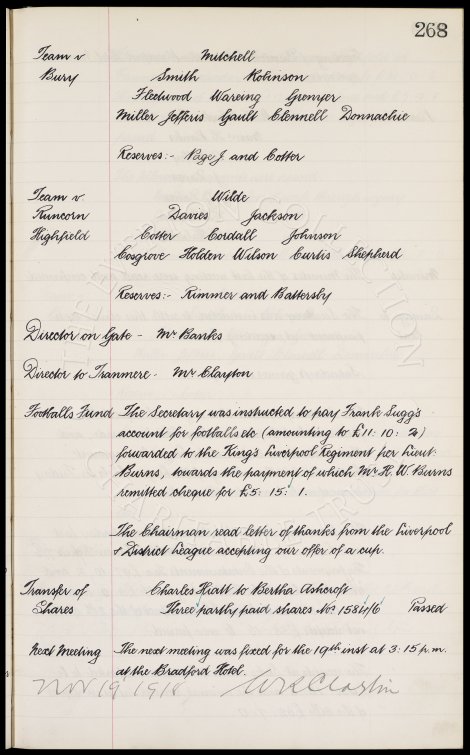 268
Team v Mitchell
Bury Smith Robinson
Fleetwood Wareing Grenyer
Miller Jefferis Gault Clennell Donnachie
Reserves:- Page J and Cotter
Team v. Wilde
Runcorn Davies Jackson
Highfield Cotter Cordall Johnson
Cosgrove Holden Wilson Curtis Shepherd
Reserves:- Rimmer and Battersby
Director on Gate - Mr Banks
Director to Tranmere - Mr Clayton
Footballs Fund The Secretary was instructed to pay Frank Sugg's
account for footballs etc (amounting to £11: 10: 2)
forwarded to the King's Liverpool Regiment per Lieut:
Burns, towards the payment of which Mr H. W. Burns
remitted cheque for £5: 15: 1.
The Chairman read letter of thanks from the Liverpool
& District League accepting our offer of a cup.
Transfer of Charles Hiatt to Bertha Ashcroft
Shares Three partly paid shares Nos 1584/6 Passed
Next Meeting The next meeting was fixed for the 19th inst at 3:15 p.m.
at the Bradford Hotel.
Nov 19 1918 W R Clayton